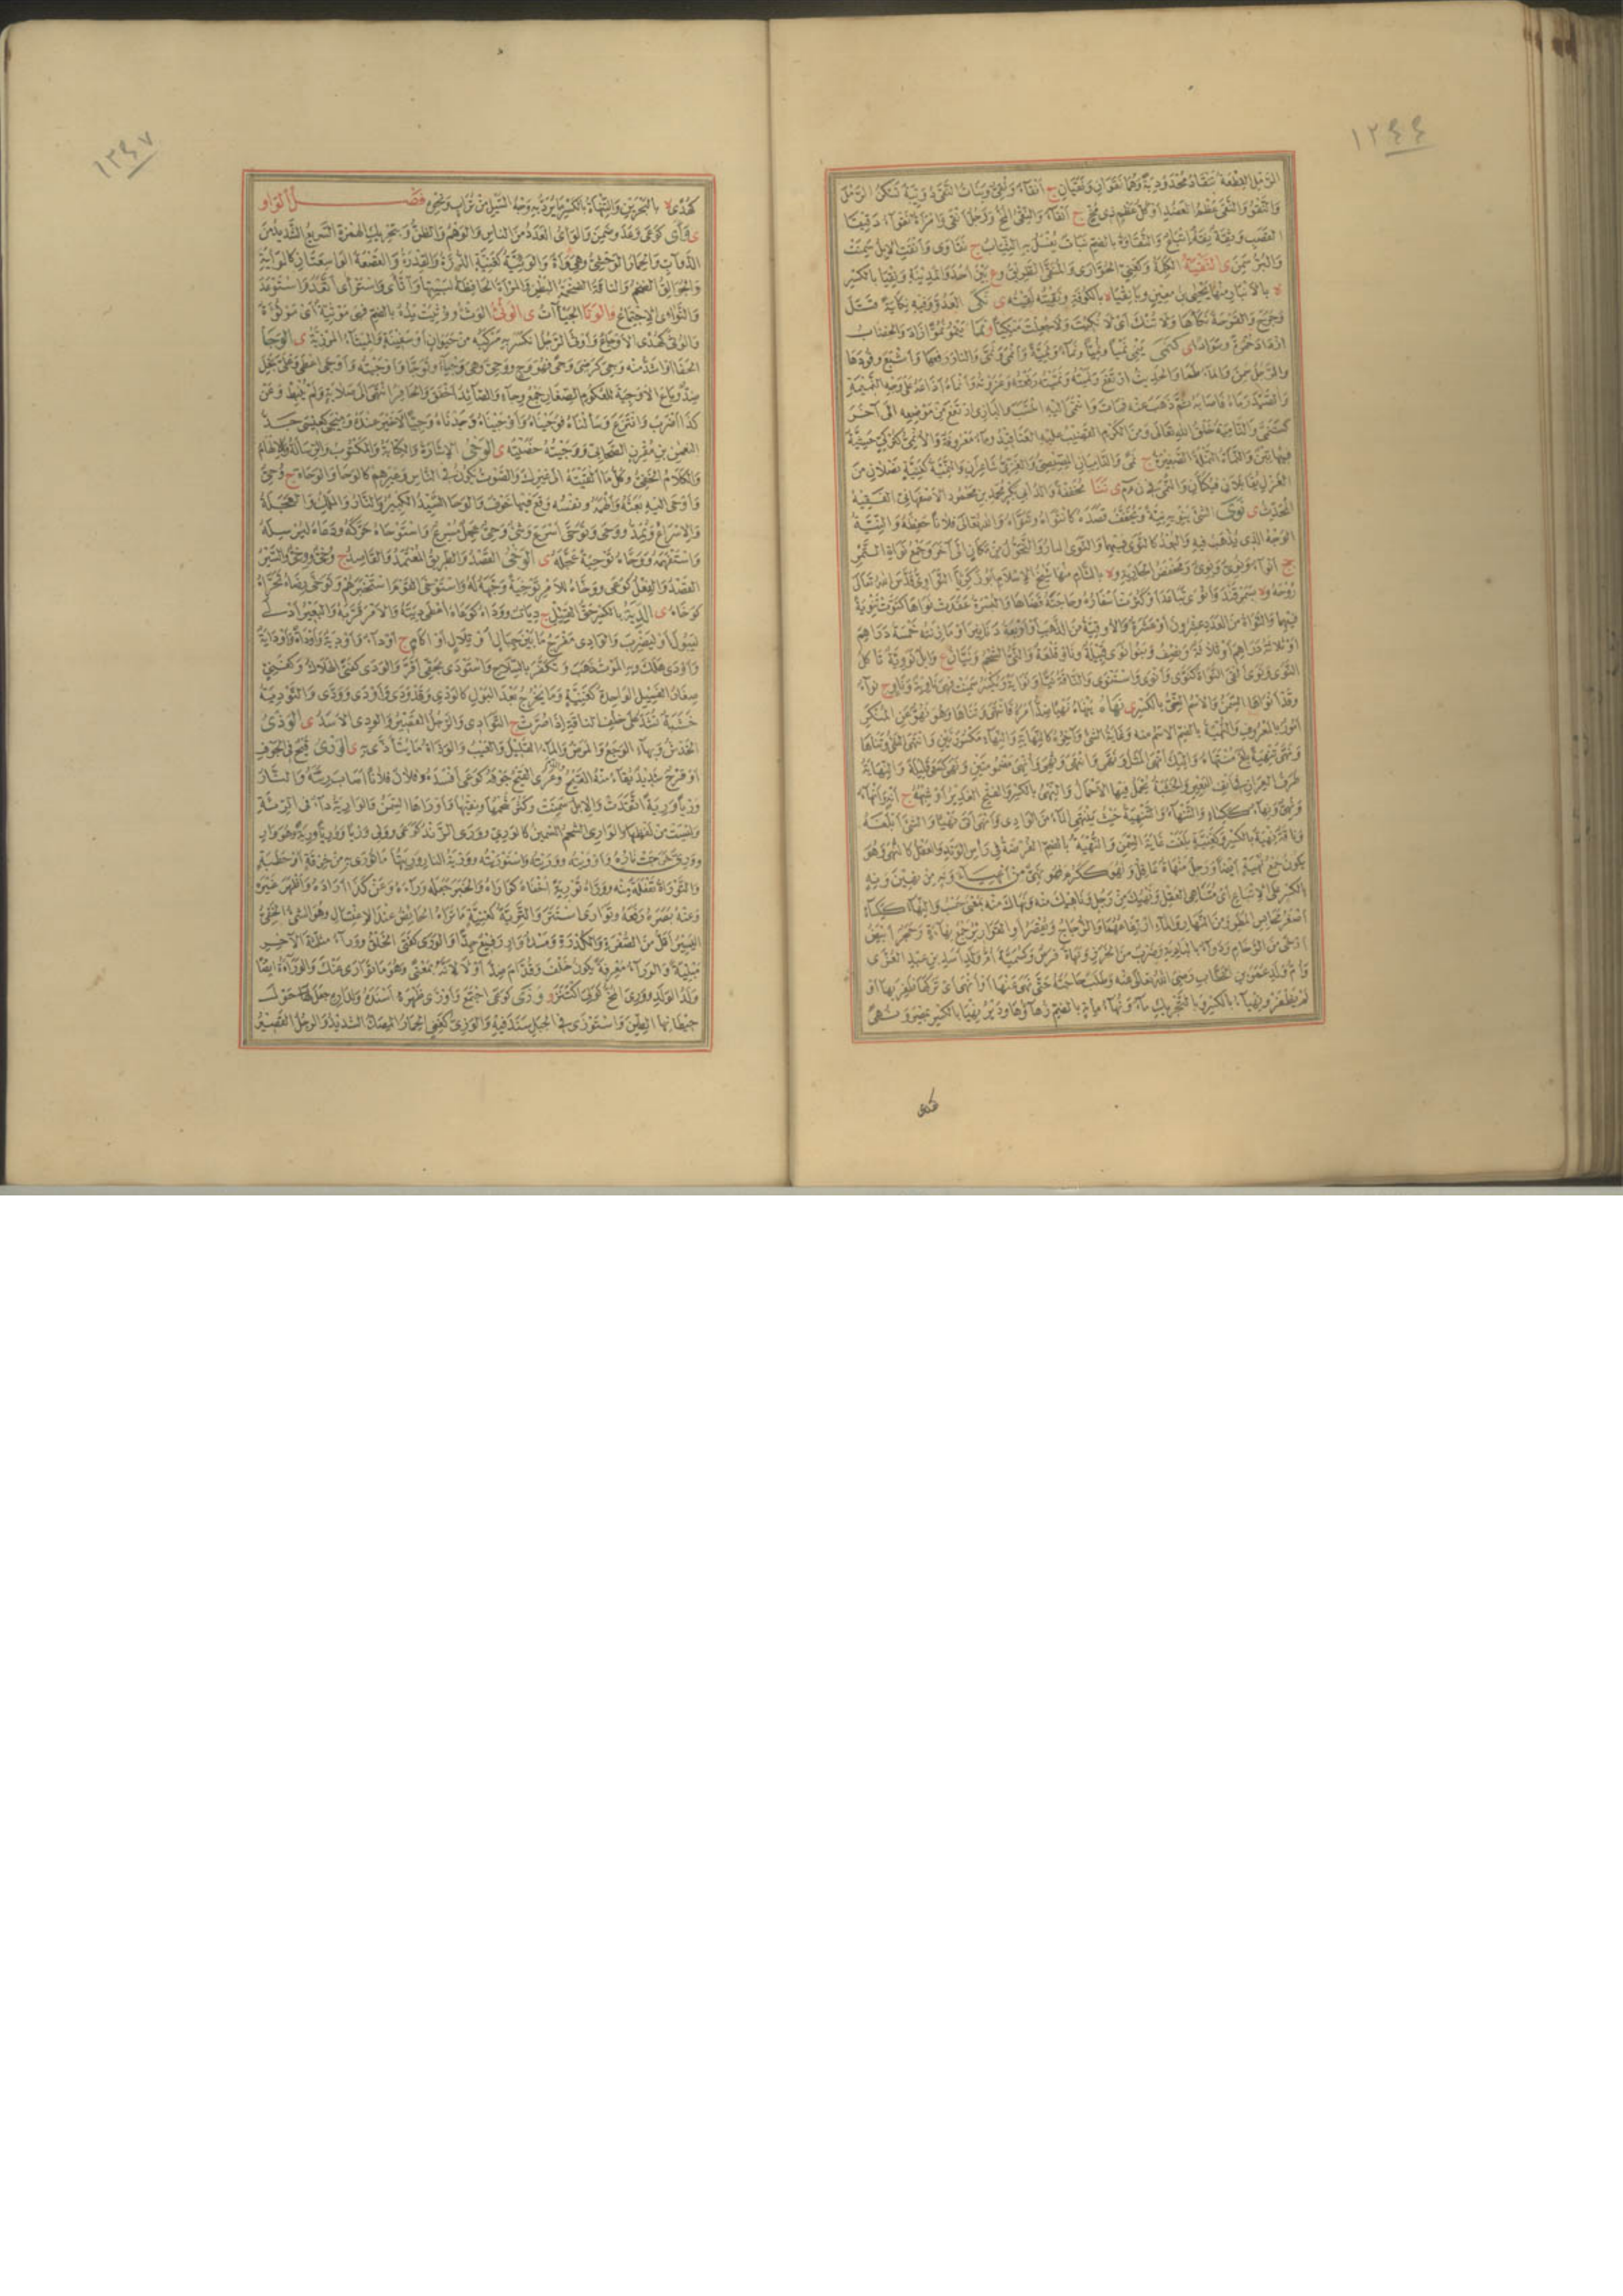 ١٢٤٤
الرمل القطعة تنقاد محدودبة وهما نقوان ونقيان ج انقاء ونقي وبنات النقى دويبة تسكن الرمل
والنقو والنقى عظم العضد او كل عظم ذى مخ ج انقاء والنقى المخ ورجل انقى وامرأة نقواء دقيقا
القصب وثقة نقة اتباع والنقاوة بالضم نبات يغسل به الثياب ج نقاوى وانقت الابل سمنت
والبر سمن ى النقية الكلمة وكغني الحوارى والمنقى الطريق وع بين احد والمدينة ونقيا بالكسر
ة بالانبار منها يحيى بن معين وبانقياء بالكوفة ونقيته لقيته ى نكى العدو وفيه نكاية قتل
وجرح والقرحة نكأها ولا تنك اى لا نكيت ولا جعلت منكيا و نما ينمو نموا زاد والخضاب
ازداد حمرة وسوادا ى كنمى ينمى نميا ونميا ونماء ونمية وانمى ونمى والنار رفعها واشبع وقودها
والرجل سمن والماء طما والحديث ارتفع ونميته ونميته رفعته وعزوته وانماه اذاعه على وجه النميمة
والصيد رماه فاصابه ثم ذهب عنه فمات وانتمى اليه انتسب والبازى ارتفع من موضعه الى آخر
كتنمى والنامية خلق الله تعالى ومن الكرم القضيب عليه العناقيد وماءة معروفة والانمي كتركي خشبة
فيها تبن والنماة النملة الصغيرة ج نمى والناميان المصيصي والغزي شاعران والنمية كغنية نصلان من
الغزل يقابلان فيكبان والنمى فى ن م م ى ننا مخففة والد ابى بكر محمد بن محمود الاصفهاني الفقيه
المحدث ى نوى الشئ ينويه نية ويخفف قصده كانتواه وتنواه والله تعالى فلانا حفظه والنية
الوجه الذى يذهب فيه والبعد كالنوى فيهما والنوى الدار والتحول من مكان الى آخر وجمع نواة التمر
ج انواء ونوى ونوى ومخفض الجارية وة بالشام منها شيخ الاسلام ابو زكريا النواوى قدس الله تعالى
روحه وة بسمرقند وانوى تباعد او كثرت اسفاره وحاجته قضاها والبسرة عقدت نواها كنوت تنوية
فيهما والنواة من العدد عشرون او عشرة والاوقية من الذهب او اربعة دنانير او ما زنته خمسة دراهم
او ثلاثة دراهم او ثلاثة ونصف وبنو نوى قبيلة وناو قلعة والني الشحم ونيان ع وابل نووية تأكل
النوى ونوى القى النواة كنوى وانوى واستنوى والناقة نيا ونواية وتكسر سمنت فهى ناوية وناو ج نواء
وقد انواها السمن والاسم الني بالكسر ى نهاه ينهاه نهيا ضد امره فانتهى وتناهى وهو نهو عن المنكر
امور بالمعروف والنهية بالضم الاسم منه وغاية الشئ وآخره كالنهاية والنهاء مكسورتين وانتهى الشئ وتناهى
ونهى تنهية بلغ نهايته واليك انهى المثل ونهى وانتهى وانهي ونهي مضمومتين ونهى كسعى قليلة والنهاية
طرف العران فى انف البعير والخشبة يحمل فيها الاحمال والنهى بالكسر والفتح الغدير او شبهه ج انه وانهاء
ونهي ونهاء ككساء والتنهاة والتنهية حيث ينتهى الماء من الوادى وانهى اتى نهيا والشئ ابلغه
وناقة نهية بالكسر وكغنية بلغت غاية السمن والنهية بالضم الفرضة فى رأس الوتد والعقل كالنهى وهو
يكون جمع نهية ايضا ورجل منهاة عاقل ونهو ككرم فهو نهي من انهياء ونه من نهين ونه
بالكسر على الاتباع اى متناهى العقل ونهيك من رجل وناهيك منه ونهاك منه بمعنى حسب والنهاء ككساء
اصغر محابس المطر ومن النهار والماء ارتفاعهما والزجاج ويقصر او القوارير جمع نهاءة وحجر ابيض
ارخى من الرخام ودواء بالبادية وضرب من الخرز ونهاة فرس وكسمية ام ولد اسد بن عبد العزى
وام ولد عمر بن الخطاب رضى الله تعالى عنه وطلب حاجة حتى نهى عنها او انهى اى تركها ظفر بها او
لم يظفر ونهيا بالكسر وبالتحريك ماء ونهاء مائة بالضم زهاؤها ودير نهيا بالكسر بمصر ونهى
كهدى
١٢٤٧
كهدى ة بالبحرين والنهاة بالكسر ما يرد به وجه السيل من تراب ونحوه فصل الواو
ى وأى كوعى وعد وضمن والوأى العدد من الناس والوهم والظن وبتحريك الهمزة السريع الشديد من
الدواب والحمار الوحشي وهى وآة والوئية كغنية الدرة والقدرة والقصعة الواسعتان كالوأية
والجوالق الضخم والناقة الضخمة البطن والمرأة الحافظة لبيتها وآتأى واستوأى اتعد واستوعد
والتوائى الاجتماع و الوتا الجيآت ى الوثى الوثء ووثيت يده بالضم فهى موثية اى موثوءة
والوثى كهدى الاوجاع واوثى الرجل انكسر به مركبه من حيوان او سفينة والميثاء المرزبة ى الوجا
الحفا او اشد منه وجى كرضى وجى فهو وج ووجي وهى وجياء وتوجا واوجيته واوجى اعطى وعنى بخل
ضد وباع الاوجية للعكوم الصغار جمع وجاء والصائد اخفق والحافر انتهى الى صلابة ولم ينبط وعن
كذا اضرب وانتزع وسألناه فوجيناه واوجيناه وجدناه وجيا لا خير عنده وميجى كعيسى جد
النعمن بن مقرن الصحابى ووجيته خصيته ى الوحى الاشارة والكتابة والمكتوب والرسالة والالهام
والكلام الخفي وكل ما القيته الى غيرك والصوت يكون فى الناس وغيرهم كالوحى والوحاة ج وحي
واوحى اليه بعثه والهمه ونفسه وقع فيها خوف والوحى السيد الكبير والنار والملك والعجلة
والاسراع ويمد ووحى وتوحى اسرع وشئ وحي عجل مسرع واستوحاه حركه ودعاه ليرسله
واستفهمه ووحاه توحية عجله ى الوخى القصد والطريق المعتمد والقاصد ج وخي ووخي والسير
القصد والفعل كوعى ووخاه للامر توخية وجهه له واستوخى القوم استخبرهم وتوخى رضاه تحراه
كوخاه ى الدية بالكسر حق القتيل ج ديات ووداه كوعاه اعطى ديته والامر قربه والبعير ادلى
ليبول او ليضرب والوادى مفرج ما بين جبال او تلال او آكام ج اوداء واودية واوداة واوداية
واودى هلك وبه الموت ذهب وتكفر بالسلاح واستودى بحقى اقر والودى كفتى الهلاك وكغني
صغار الفسيل الواحدة كغنية وما يخرج بعد البول كالودى وقد ودى واودى وودى والتودية
خشبة تشد على خلف الناقة اذا صرت ج التوادى والرجل القصير والمودى الاسد ى الوذى
الخدش وبهاء الوجع والمرض والماء القليل والعيب والوذاة ما يتأذى به ى الورى قيح فى الجوف
او قرح شديد يقاء منه القيح والدم ورى القيح جوفه كوعى افسده وفلان فلانا اصاب رئته والنار
وريا ورية اتقدت والابل سمنت وكثر شحمها ونقيها واوراها السمن والوارية داء فى الرئة
وليست من لفظها والوارى الشحم السمين كالورى وورى الزند كوعى وولى وريا ووريا ورية فهو وار
وورى خرجت ناره واوريته ووريته واستوريته ووريه النار وريتها ما تورى به من خرقة او حطبة
والتوراة تفعلة منه ووراه تورية اخفاه كواراه والخبر جعله وراءه وعن كذا اراده واظهر غيره
وعنه بصره دفعه وتوارى استتر والترية كغنية ما تراه الحائض عند الاغتسال وهو الشئ الخفي
اليسير اقل من الصفرة والكدرة ومسك وار رفيع جدا والورى كفتى الخلق ووراء مثلثة الآخر
مبنية والوراء معرفة يكون خلف وقدام ضد او لا لانه بمعنى وهو ما توارى عنك والوراء ايضا
ولد الولد وورى المخ كولى اكتنز و وزى كوعى اجتمع واوزى ظهره اسنده ولداره جعل حول
حيطانها الطين واستوزى فى الجبل سند فيه والوزى كفتى الحمار المصك الشديد والرجل القصير